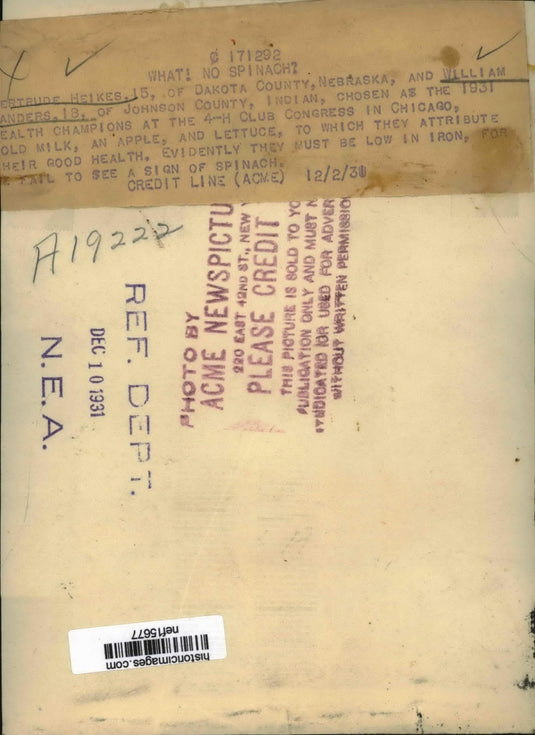 C 171292
WHAT! NO SPINACH?
ERTRUDE HEIKES, 15, OF DAKOTA COUNTY, NEBRASKA, AND WILLIAM
ANDERS, 18, OF JOHNSON COUNTY, INDIAN, CHOSEN AS THE 1931
EALTH CHAMPIONS AT THE 4-H CLUB CONGRESS IN CHICAGO,
OLD MILK, AN APPLE, AND LETTUCE, TO WHICH THEY ATTRIBUTE
HEIR GOOD HEALTH. EVIDENTLY THEY MUST BE LOW IN IRON, FOR
E FAIL TO SEE A SIGN OF SPINACH.
CREDIT LINE (ACME) 12/2/31
A19222
PHOTO BY
ACME NEWSPICTU
220 EAST 42ND ST., NEW
PLEASE CREDIT
THIS PICTURE IS SOLD TO YO
PUBLICATION ONLY AND MUST N
SYNDICATED OR USED FOR ADVER
WITHOUT WRITTEN PERMISSIO
REF. DEPT.
DEC 10 1931
N.E.A.
historicimages.com
nef15677